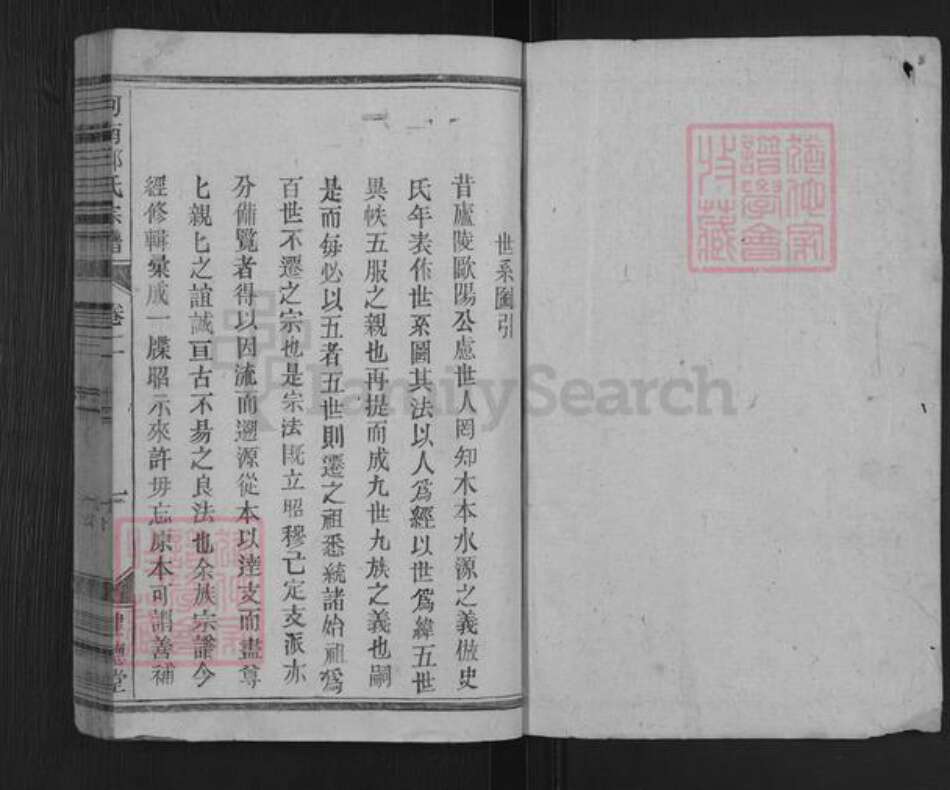 譜學會
收藏
世系圖引
昔廬陵歐陽公慮世人罔知木本水源之義倣史
氏年表作世系圖其法以人爲經以世爲緯五世
異帙五服之親也再提而成九世九族之義也嗣
是而每必以五者五世則遷之祖悉統諸始祖爲
百世不遷之宗也是宗法既立昭穆已定支派亦
分俻覽者得以因流而遡源從本以達支而盡尊
匕親匕之誼誠亘古不易之良法也余族宗譜今
經修輯彙成一牒昭示來許毋忘原本可謂善補
河南 氏宗譜
卷
堂
FamilySearch